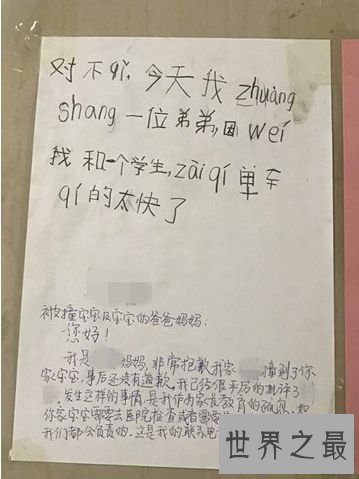 对不qǐ,今天我zhuàng
shang一位弟弟,因wéi
我和一个学生,zài qí单车
qí的太快了
被撞宝宝及宝宝的爸爸妈妈:
您好!
我是 妈妈,非常抱歉我家 撞到了你
家宝宝,事后还没有道歉。我已经很严厉的批评了
。发生这样的事情,是我作为家长教育的疏忽,如
你家宝宝需要去医院检查或者需要
我们都会负责的。这是我的联系电
世界之最